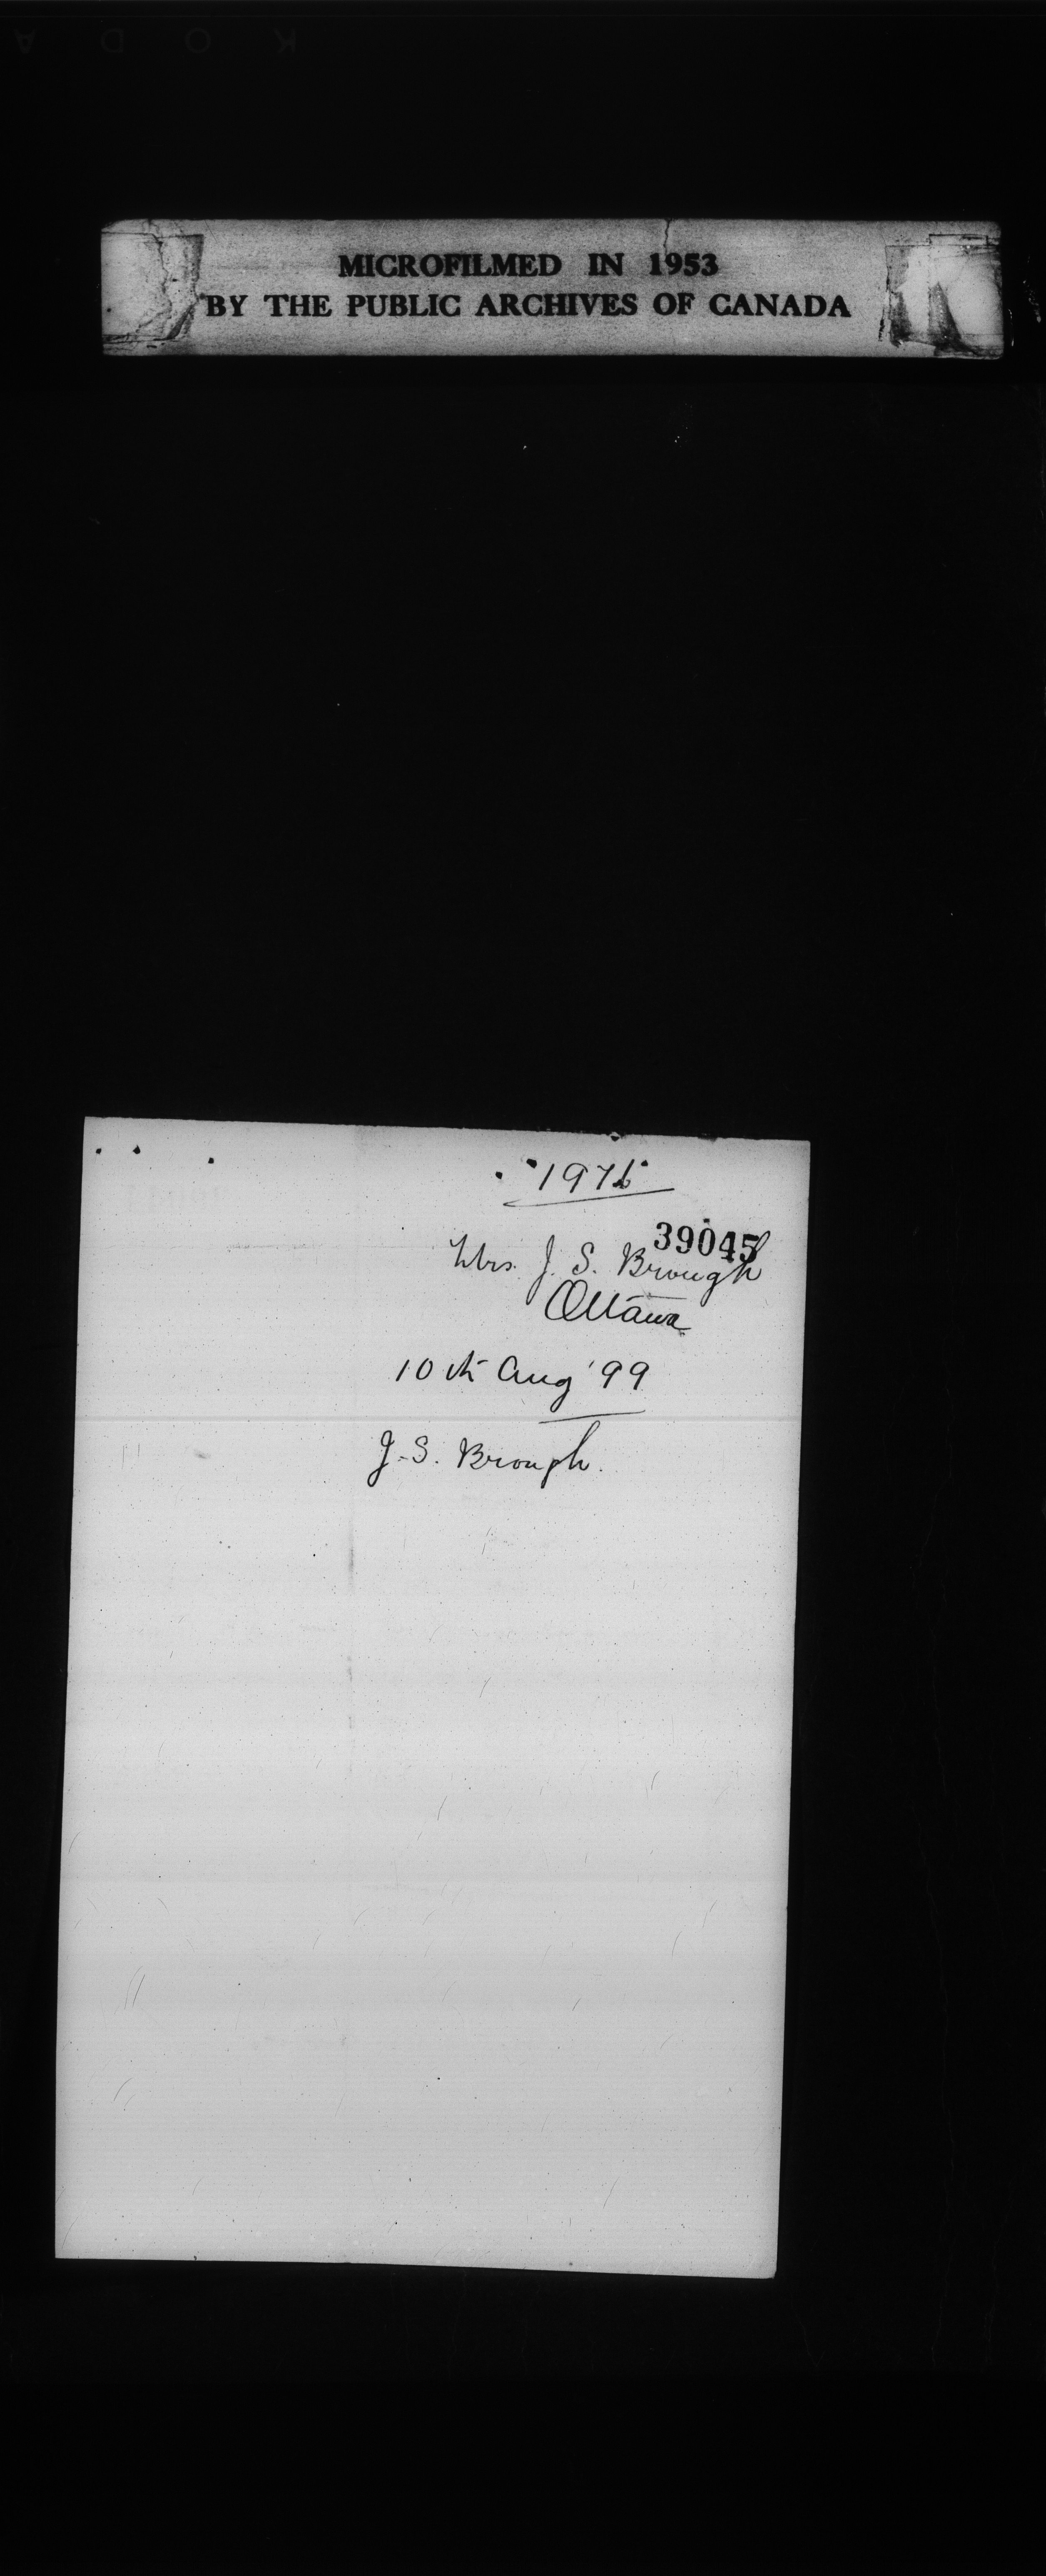 KODA
MICROFILMED IN 1953
BY THE PUBLIC ARCHIVES OF CANADA
39045
Mrs. J. S. Brough
Ottawa
10th Aug '99
J. S. Brough.